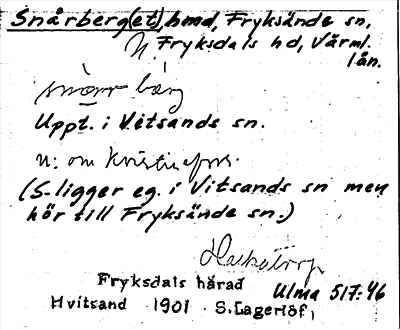 Snårberg(et), hmd, Fryksände sn,
N. Fryksdals hd, Värml.
län.
Uppt. i Vitsands sn.
n: om
(S. ligger eg. i Vitsands sn men
hör till Fryksände sn.)
Fryksdals härad
Ulma 517:46
Hvitsand 1901 S. Lagerlöf,